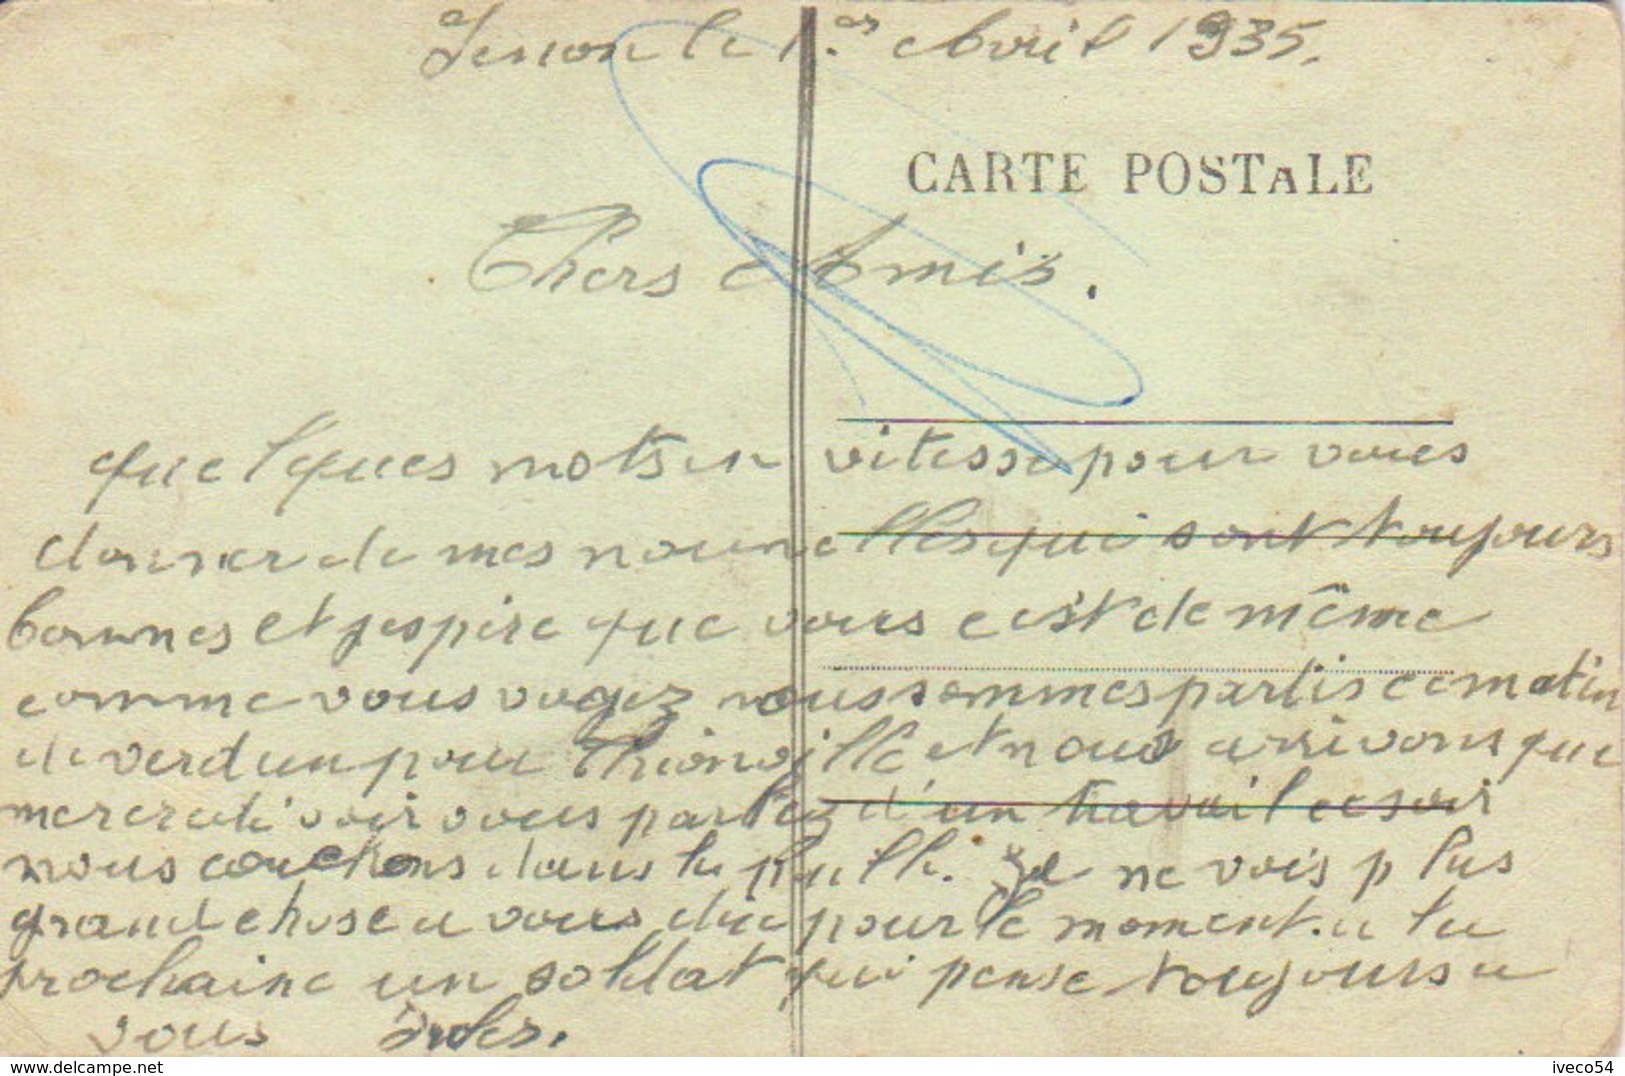 le 1.er Avril 1935.
CARTE POSTALE
Chers Amis.
quelques mots en vitesse pour vous
donner de mes nouvelles qui sont toujours
bonnes et jespire que vous c est de même
comme vous voyez nous sommes partis ce matin
de verdun pour Thionville et nous arrivons que
mercredi voir vous parlez d'un travail ce soir
nous couchons dans la paille. Je ne vois plus
grand chose a vous dire pour le moment. a la
prochaine un soldat qui pense toujours a
vous Jules.
delcampe.net
iveco54